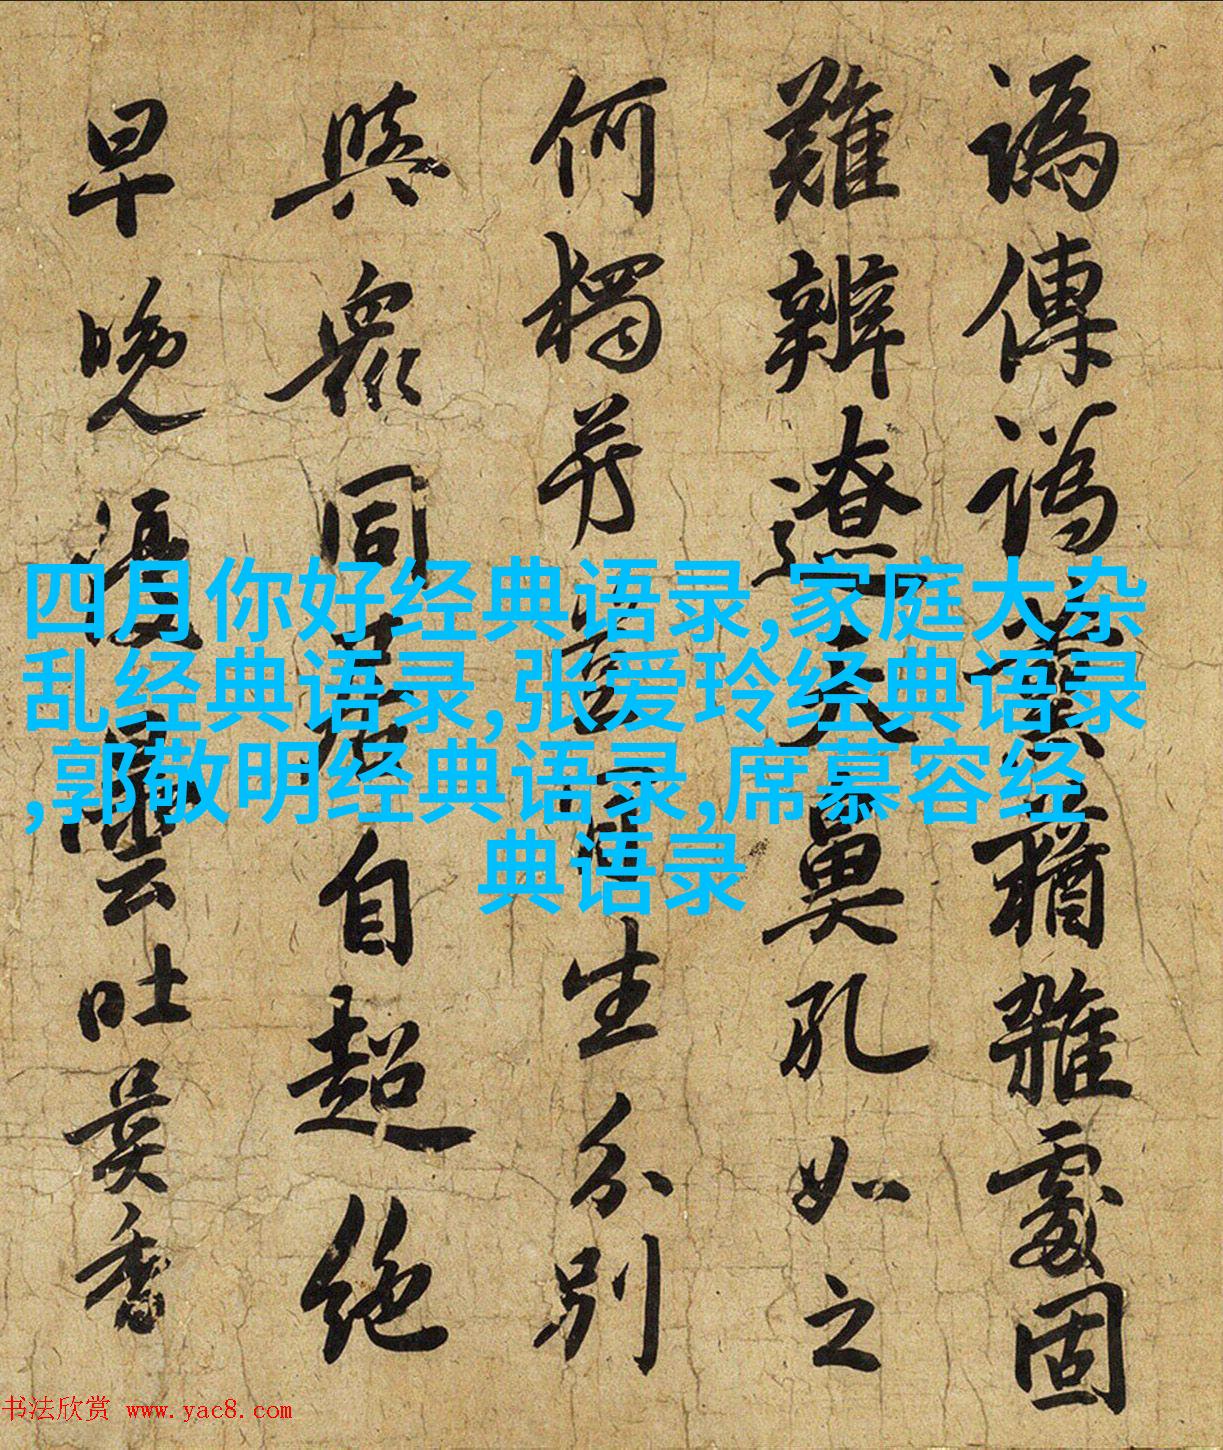 譌傳譌薰蕕雜處固
難辨遼天鼻孔如之
何獨生分別
與衆同居自超絕
早晚優曇吐異香
四月你好经典语录,家庭大杂
乱经典语录,张爱玲经典语录
,郭敬明经典语录,席慕容经
典语录
书法欣赏 www.yac8.com